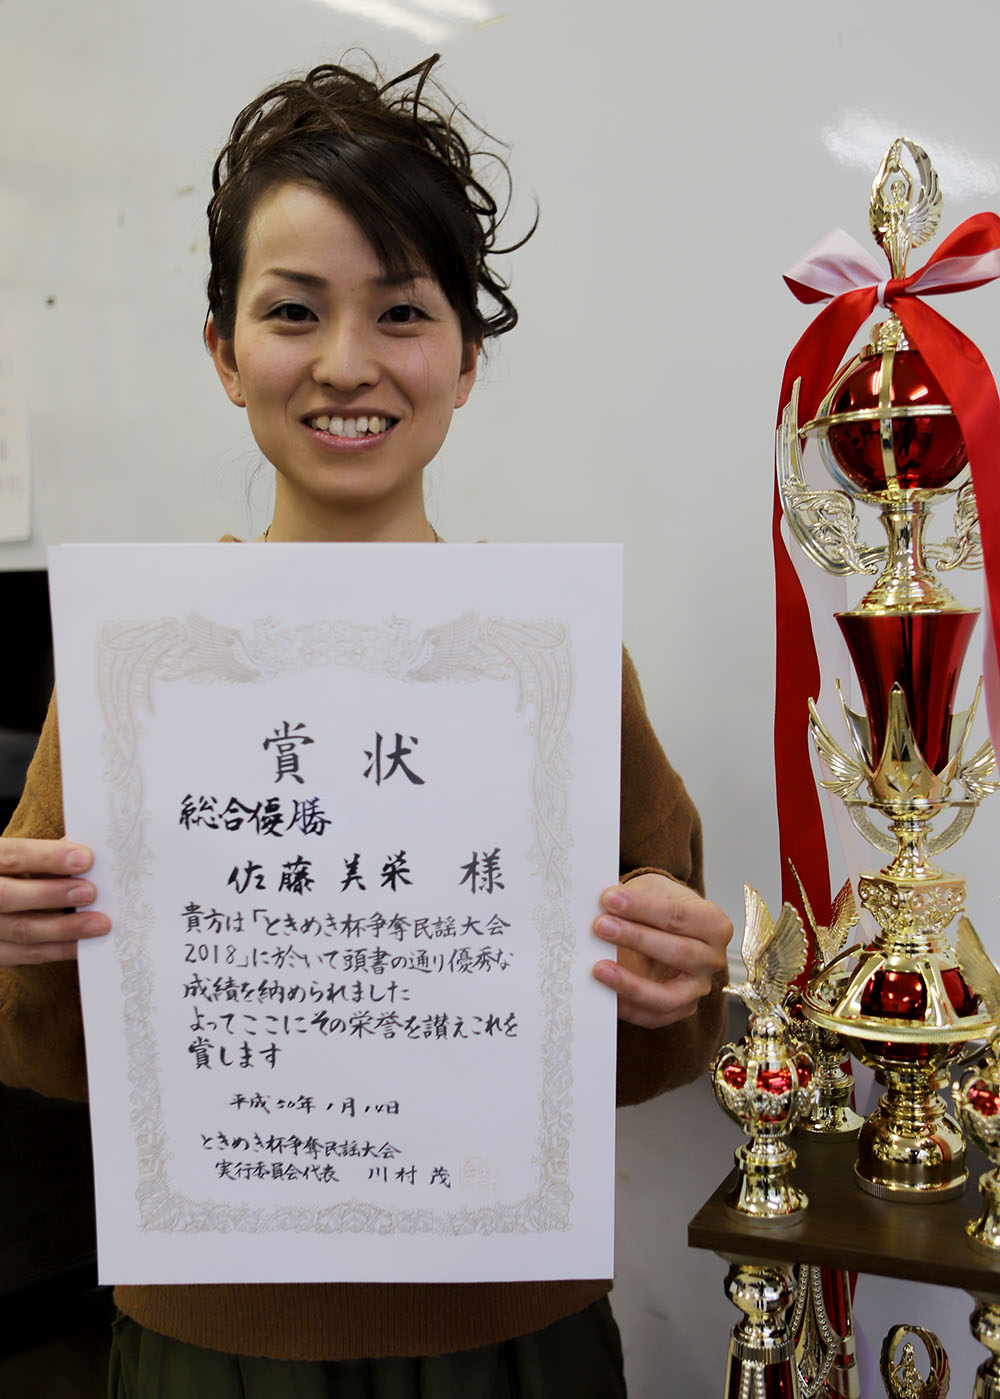 賞状
総合優勝
佐藤美栄 様
貴方は「ときめき杯争奪民謡大会
2018」に於いて頭書の通り優秀な
成績を納められました
よってここにその栄誉を讃えこれを
賞します
平成30年1月14日
ときめき杯争奪民謡大会
実行委員会代表 川村 茂